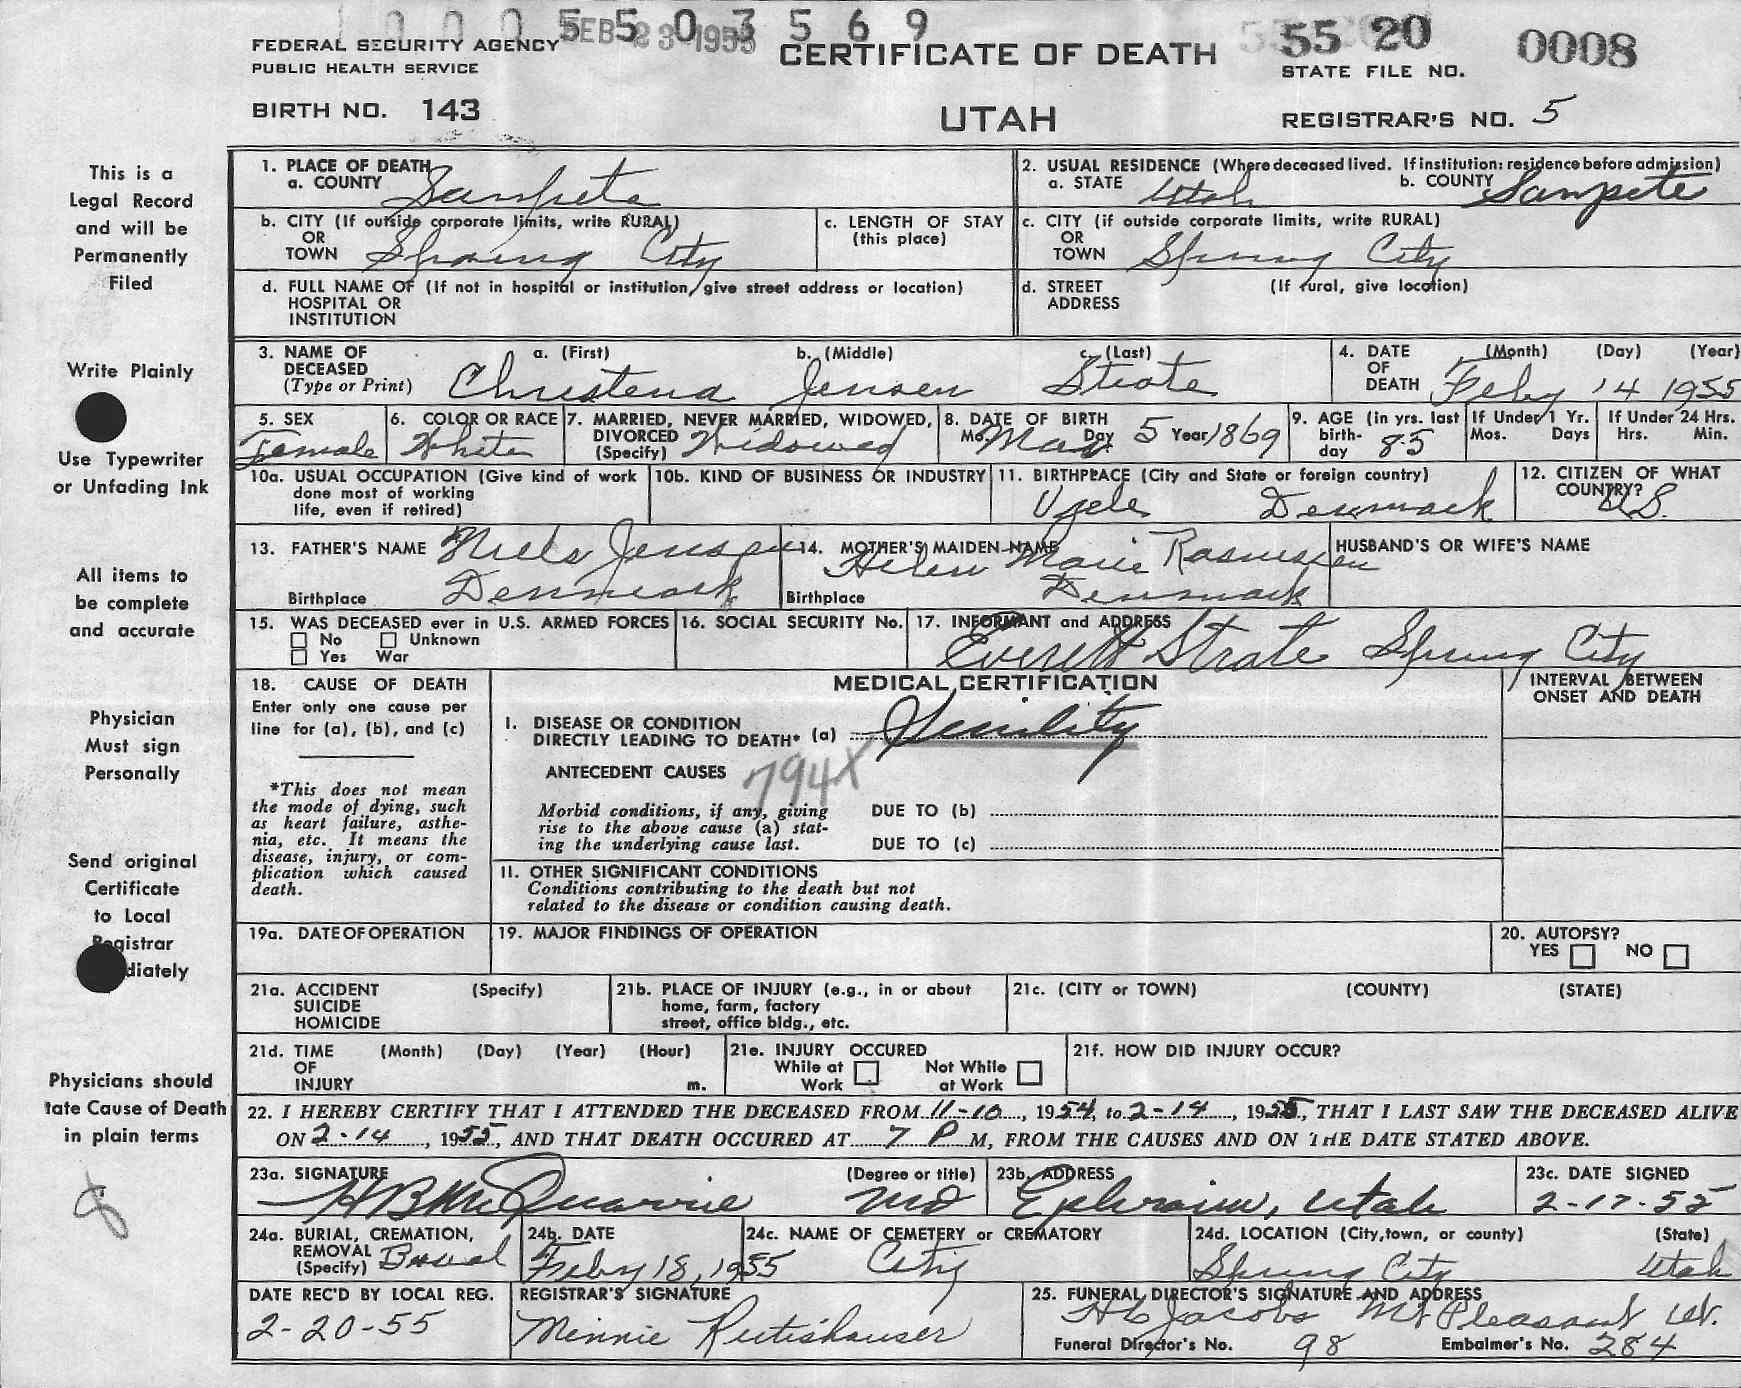 5 5 0 3 5 6 9
FEB 23 1955
FEDERAL SECURITY AGENCY
PUBLIC HEALTH SERVICE
CERTIFICATE OF DEATH
55 20 0008
STATE FILE NO.
BIRTH NO. 143
UTAH
REGISTRAR'S NO. 5
This is a
Legal Record
and will be
Permanently
Filed
Write Plainly
Use Typewriter
or Unfading Ink
All items to
be complete
and accurate
Physician
Must sign
Personally
Send original
Certificate
to Local
Registrar
diately
Physicians should
tate Cause of Death
in plain terms
8
1. PLACE OF DEATH
a. COUNTY Sanpete
2. USUAL RESIDENCE (Where deceased lived. If institution: residence before admission)
a. STATE Utah b. COUNTY Sanpete
b. CITY (If outside corporate limits, write RURAL)
OR
TOWN Spring City
c. LENGTH OF STAY
(this place)
c. CITY (if outside corporate limits, write RURAL)
OR
TOWN Spring City
d. FULL NAME OF (If not in hospital or institution, give street address or location)
HOSPITAL OR
INSTITUTION
d. STREET (If rural, give location)
ADDRESS
3. NAME OF a. (First) b. (Middle) c. (Last)
DECEASED
(Type or Print) Christena Jensen Strate
4. DATE (Month) (Day) (Year)
OF
DEATH Feby 14 1955
5. SEX
Female
6. COLOR OR RACE
White
7. MARRIED, NEVER MARRIED, WIDOWED,
DIVORCED
(Specify) Widowed
8. DATE OF BIRTH
Mo. May Day 5 Year 1869
9. AGE (in yrs. last
birth-
day 85
If Under 1 Yr.
Mos. Days
If Under 24 Hrs.
Hrs. Min.
10a. USUAL OCCUPATION (Give kind of work
done most of working
life, even if retired)
10b. KIND OF BUSINESS OR INDUSTRY
11. BIRTHPLACE (City and State or foreign country)
Denmark
12. CITIZEN OF WHAT
COUNTRY?
U.S.
13. FATHER'S NAME Niels Jensen
Birthplace Denmark
14. MOTHER'S MAIDEN NAME
Helen Marie Rasmussen
Birthplace Denmark
HUSBAND'S OR WIFE'S NAME
15. WAS DECEASED ever in U.S. ARMED FORCES
No Unknown
Yes War
16. SOCIAL SECURITY No.
17. INFORMANT and ADDRESS
Everett Strate Spring City
18. CAUSE OF DEATH
Enter only one cause per
line for (a), (b), and (c)
*This does not mean
the mode of dying, such
as heart failure, asthe-
nia, etc. It means the
disease, injury, or com-
plication which caused
death.
MEDICAL CERTIFICATION
INTERVAL BETWEEN
ONSET AND DEATH
I. DISEASE OR CONDITION
DIRECTLY LEADING TO DEATH* (a) Senility
ANTECEDENT CAUSES 794X
Morbid conditions, if any, giving
rise to the above cause (a) stat-
ing the underlying cause last.
DUE TO (b)
DUE TO (c)
II. OTHER SIGNIFICANT CONDITIONS
Conditions contributing to the death but not
related to the disease or condition causing death.
19a. DATE OF OPERATION
19. MAJOR FINDINGS OF OPERATION
20. AUTOPSY?
YES NO
21a. ACCIDENT (Specify)
SUICIDE
HOMICIDE
21b. PLACE OF INJURY (e.g., in or about
home, farm, factory
street, office bldg., etc.
21c. (CITY or TOWN) (COUNTY) (STATE)
21d. TIME (Month) (Day) (Year) (Hour)
OF
INJURY m.
21e. INJURY OCCURED
While at Work Not While at Work
21f. HOW DID INJURY OCCUR?
22. I HEREBY CERTIFY THAT I ATTENDED THE DECEASED FROM 11-10, 1954, to 2-14, 1955, THAT I LAST SAW THE DECEASED ALIVE
ON 2-14, 1955, AND THAT DEATH OCCURED AT 7 P M, FROM THE CAUSES AND ON THE DATE STATED ABOVE.
23a. SIGNATURE (Degree or title)
H B McQuarrie MD
23b. ADDRESS
Ephraim, Utah
23c. DATE SIGNED
2-17-55
24a. BURIAL, CREMATION,
REMOVAL
(Specify) Burial
24b. DATE
Feby 18, 1955
24c. NAME OF CEMETERY or CREMATORY
City
24d. LOCATION (City, town, or county) (State)
Spring City Utah
DATE REC'D BY LOCAL REG.
2-20-55
REGISTRAR'S SIGNATURE
Minnie Rutishauser
25. FUNERAL DIRECTOR'S SIGNATURE AND ADDRESS
Jacobs Mt Pleasant Ut.
Funeral Director's No. 98 Embalmer's No. 284